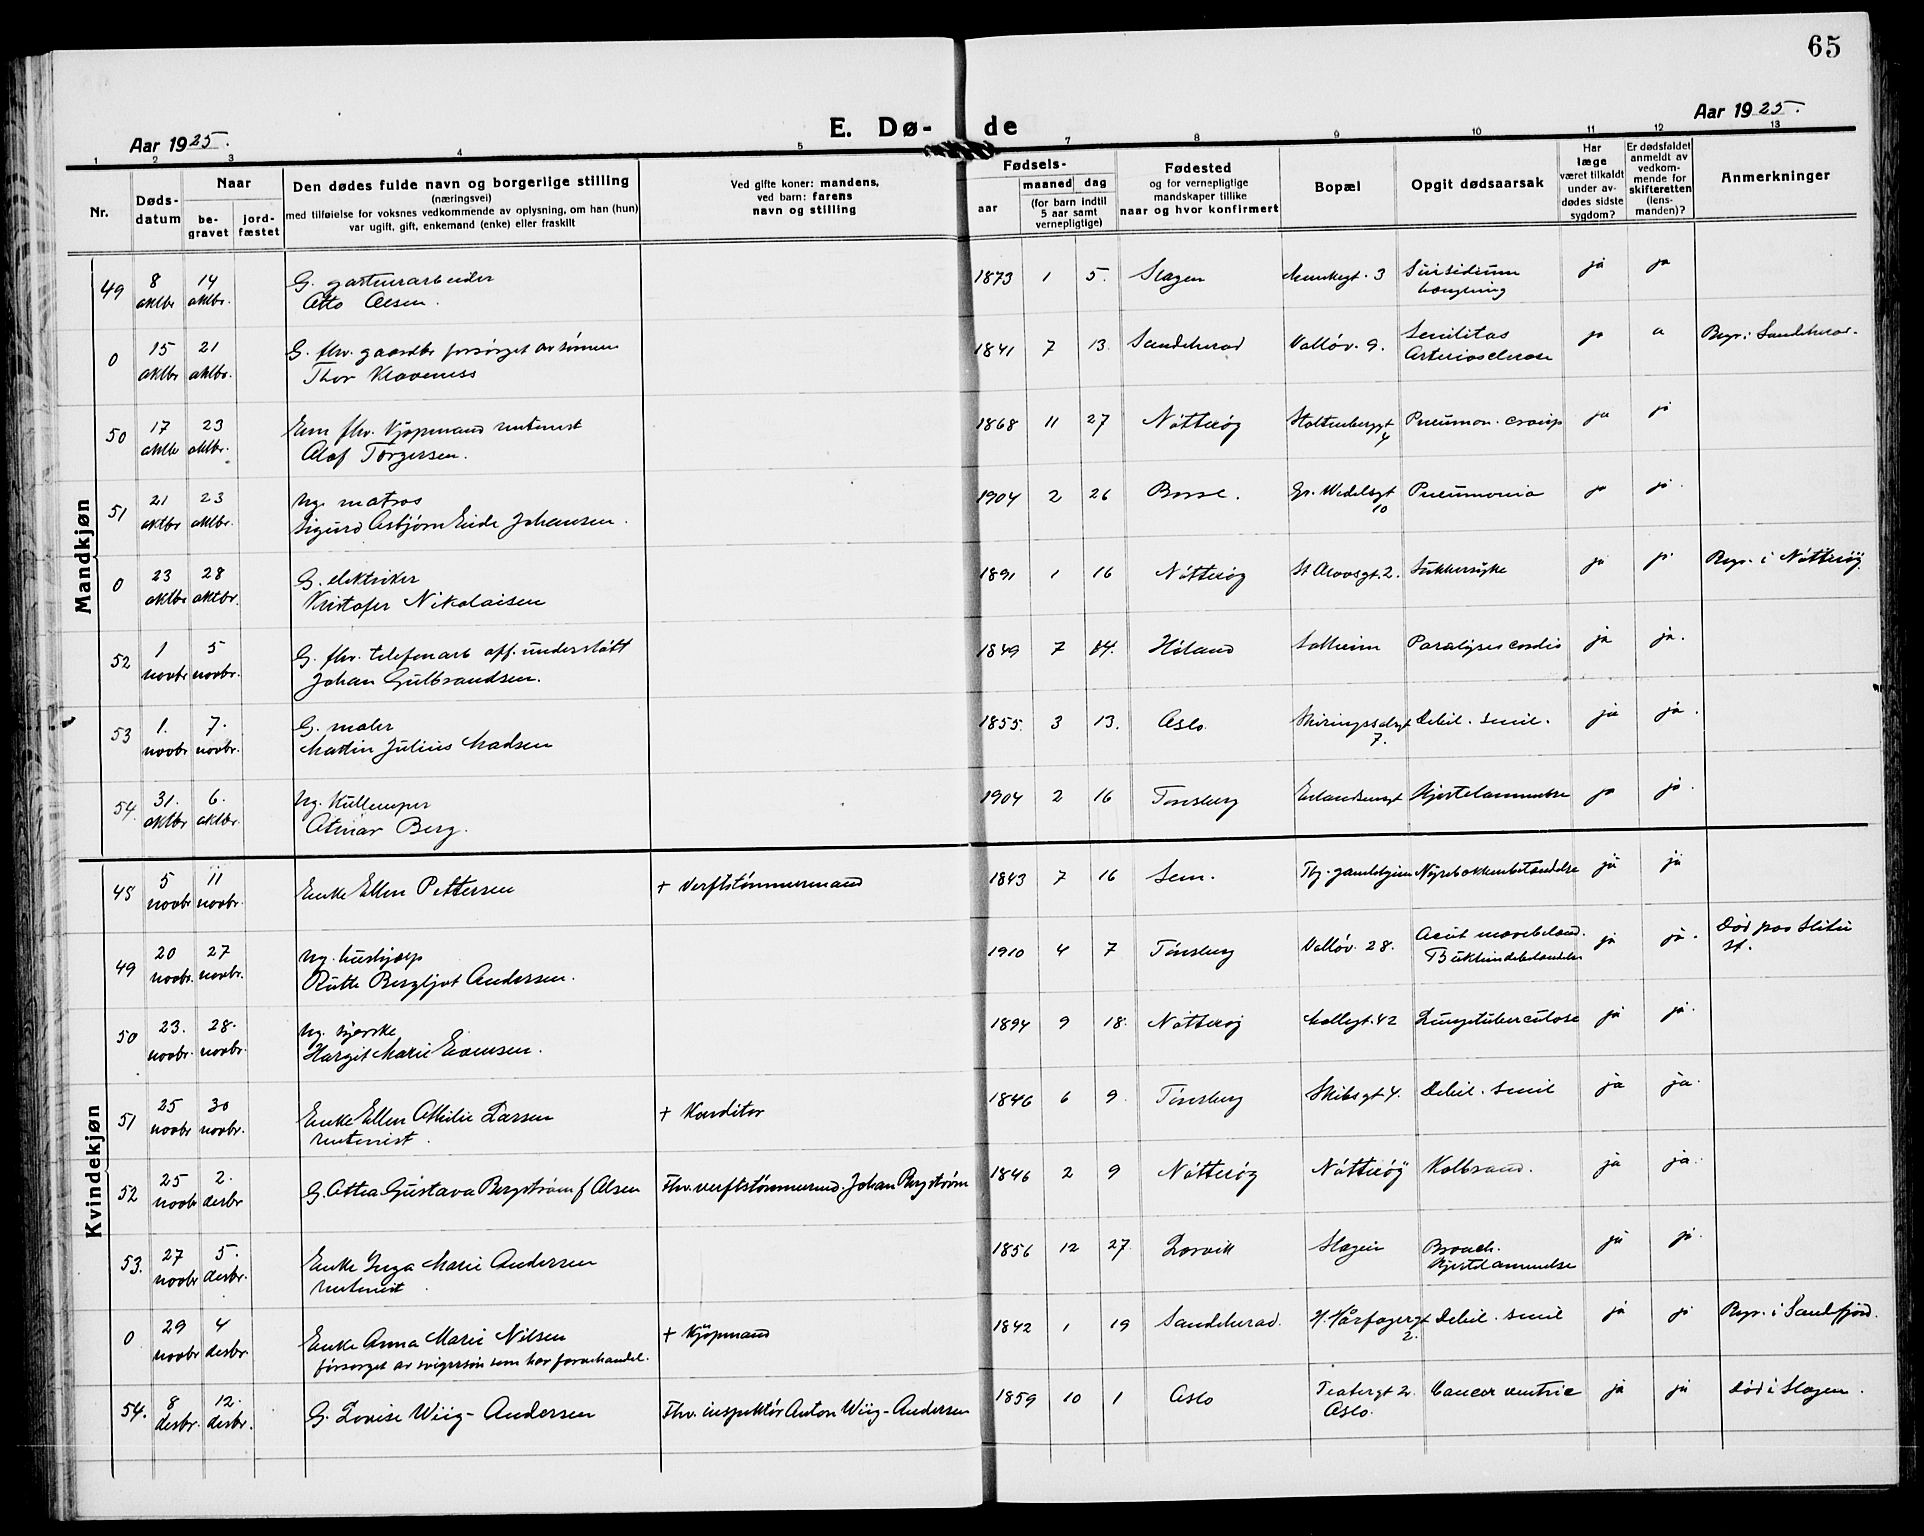 65
E. Dø- de
Aar 1925.
Aar 1925.
1 2 3 4 5 7 8 9 10 11 12 13
Nr.
Døds-
datum
Naar
be-
gravet
jord-
fæstet
Den dødes fulde navn og borgerlige stilling
(næringsvei)
med tilføielse for voksnes vedkommende av oplysning, om han (hun)
var ugift, gift, enkemand (enke) eller fraskilt
Ved gifte koner: mandens,
ved barn: farens
navn og stilling
Fødsels-
aar
maaned dag
(for barn indtil
5 aar samt
vernepligtige)
Fødested
og for vernepligtige
mandskaper tillike
naar og hvor konfirmert
Bopæl
Opgit dødsaarsak
Har
læge
været tilkaldt
under av-
dødes sidste
sygdom?
Er dødsfaldet
anmeldt av
vedkom-
mende for
skifteretten
(lens-
manden)?
Anmerkninger
Mandkjøn
49 8 14 G. gartnerarbeider 1873 1 5. Slagen Munkegt. 3 Suisidium ja ja
oktbr oktbr. Otto Olsen. hængning
0 15 21 G. fhv. gaardbr forsørget av sønnen 1841 7 13. Sandeherad Valløv. 9. Senilitas ja Begr. i Sandeherad.
oktbr oktbr. Thor Klaveness Arteriosclerose
50 17 23 Enm fhv. Kjøpmand rentenist 1868 11 27 Nøtterøy Stoltenberggt Pneumon. croup ja ja
oktbr oktbr. Olaf Torgersen. 4
51 21 23 Ug. matros 1904 2 26 Borre. Gr. Wedelsgt Pneumonia ja ja.
oktbr oktbr. Sigurd Asbjørn Eide Johansen. 10
0 23 28 G. elektriker 1891 1 16 Nøtterøy St Olavsgt. 2. Sukkersyke ja ja Begr. i Nøtterøy.
oktbr oktbr. Kristofer Nikolaisen
52 1 5 G. fhv. telefonarb off. understøtt 1849 7 Høland Solheim Paralysis cordis ja ja.
novbr novbr. Johan Gulbrandsen.
53 1. 7. G. maler 1855. 3 13. Oslo. Skiringssalsgt Debil. senil. ja ja.
novbr. novbr. Martin Julius Madsen 7.
54. 31. 6. Ug. Kullemper 1904 2 16 Tønsberg Erlandsensgt Hjertelammelse ja ja.
oktbr. oktbr. Berg.
Kvindekjøn
48 5 11 Enke Ellen Pettersen + Verftstømmermand 1843 7 16 Sem. Tbg. gamlehjem Nyrebekkenbetændelse ja ja
novbr novbr.
49 20 27 Ug. hushjælp 1910 4 7 Tønsberg Valløv. 28. Acut mavebetænd. ja ja. Død paa
novbr. novbr. Rutte Bergljot Andersen. Bukhindebetændelse
50 23. 28. Ug. syerske 1894 9 18. Nøtterøy Møllegt. 42 Lungetuberculose ja ja.
novbr. novbr. Margit Marie Evensen.
51 25 30 Enke Ellen Othilie Larsen + Konditor 1846 6 9. Tønsberg Skibsgt 4. Debil. senil ja ja.
novbr novbr. rentenist.
52 25 2. G. Othea Gustava Bergstrøm f Olsen Fhv. verftstømmermd. Johan Bergstrøm 1846 2 9 Nøtterøy Nøtterøy Kolbrand. ja ja.
novbr desbr
53. 27 5. Enke Inga Marie Andersen 1856 12 27. Larvik Slagen Bronch. ja ja.
novbr desbr. rentenist Hjertelammelse
0 29 4 Enke Anna Marie Nilsen + Kjøpmand 1842 1 19 Sandeherad. H. Hårfagergt Debil. senil ja ja Begr. i Sandefjord.
novbr desbr. forsørget av svigersøn som har farvehandel. 2.
54. 8 12. G. Lovise Wiig-Andersen Fhv. inspektør Anton Wiig-Andersen 1859 10 1 Oslo Teatergt 2. Cancer ventric ja ja Død i Slagen.
desbr. desbr. Oslo.